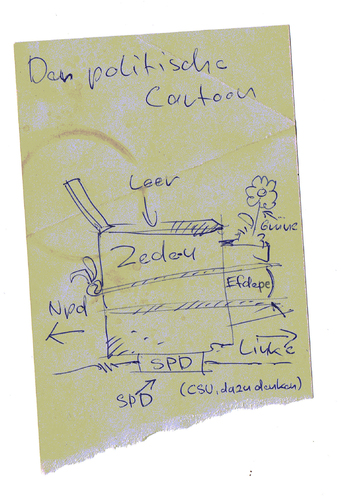 Der politische
Cartoon
Leer
Grüne
Zedeu
Efdepe
Npd
Linke
SPD
SPD
(CSU, dazu denken)